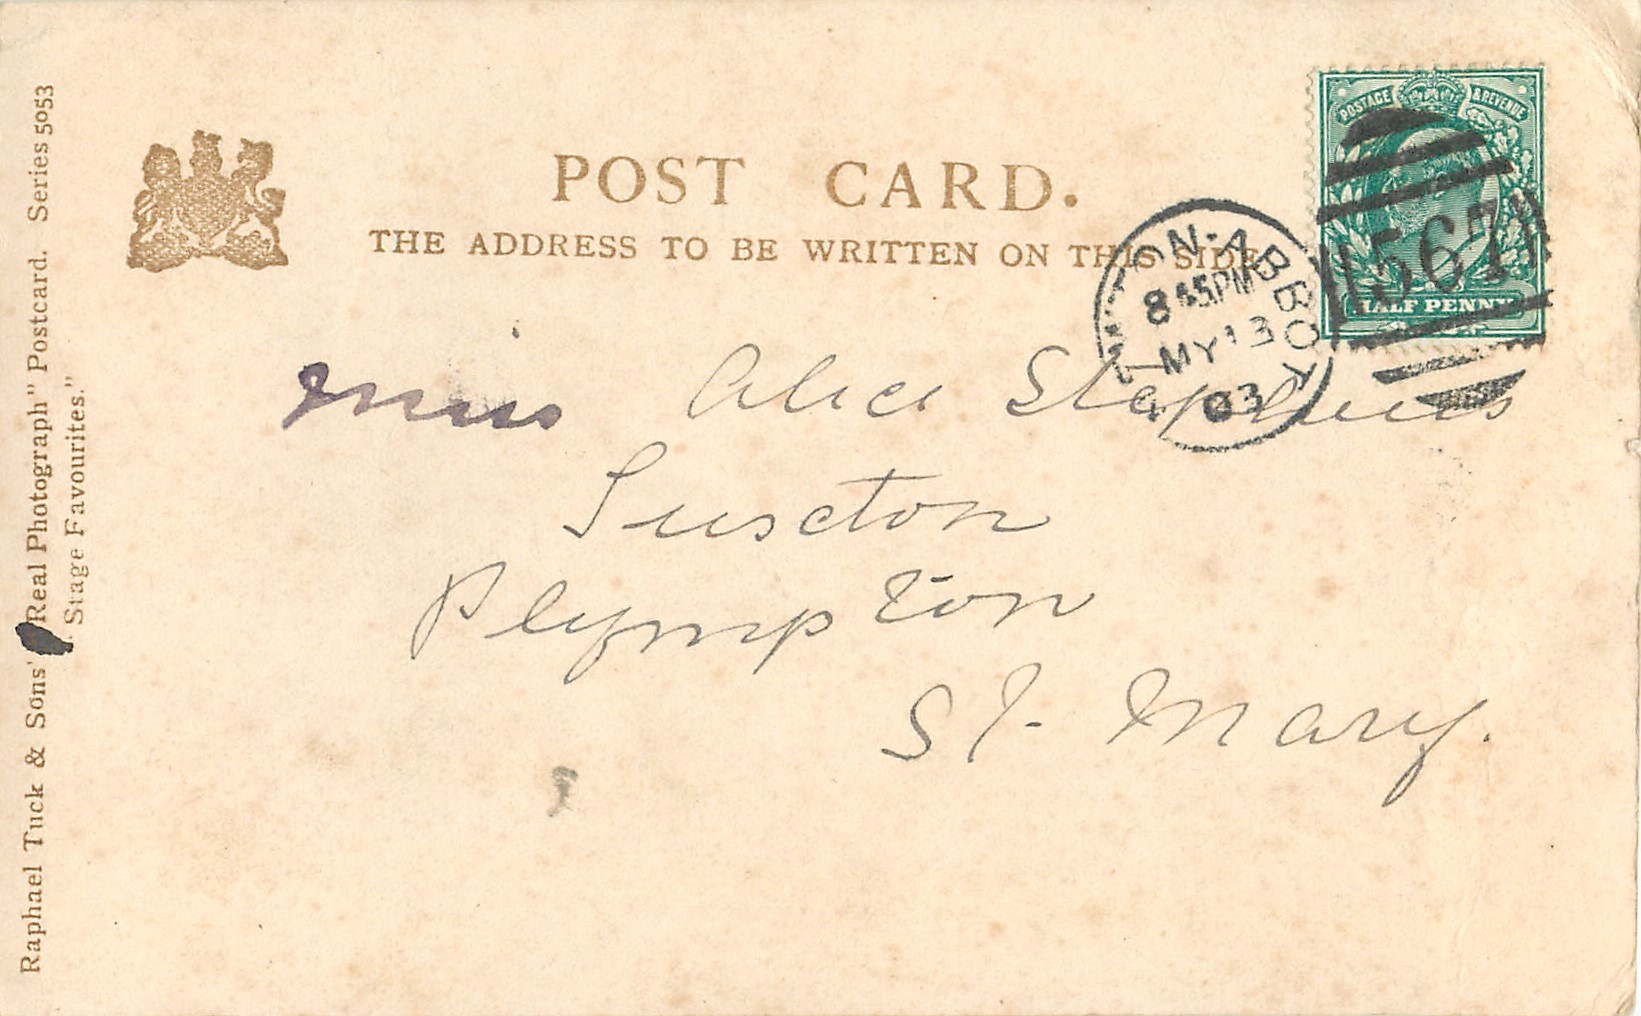 POST CARD.
THE ADDRESS TO BE WRITTEN ON THIS SIDE.
POSTAGE & REVENUE
HALF PENNY
567
NEWTON-ABBOT
8 45PM
MY 13
03
Miss Alice Stephens
Plympton
St. Mary.
Raphael Tuck & Sons' "Real Photograph" Postcard. Series 5053
"Stage Favourites."